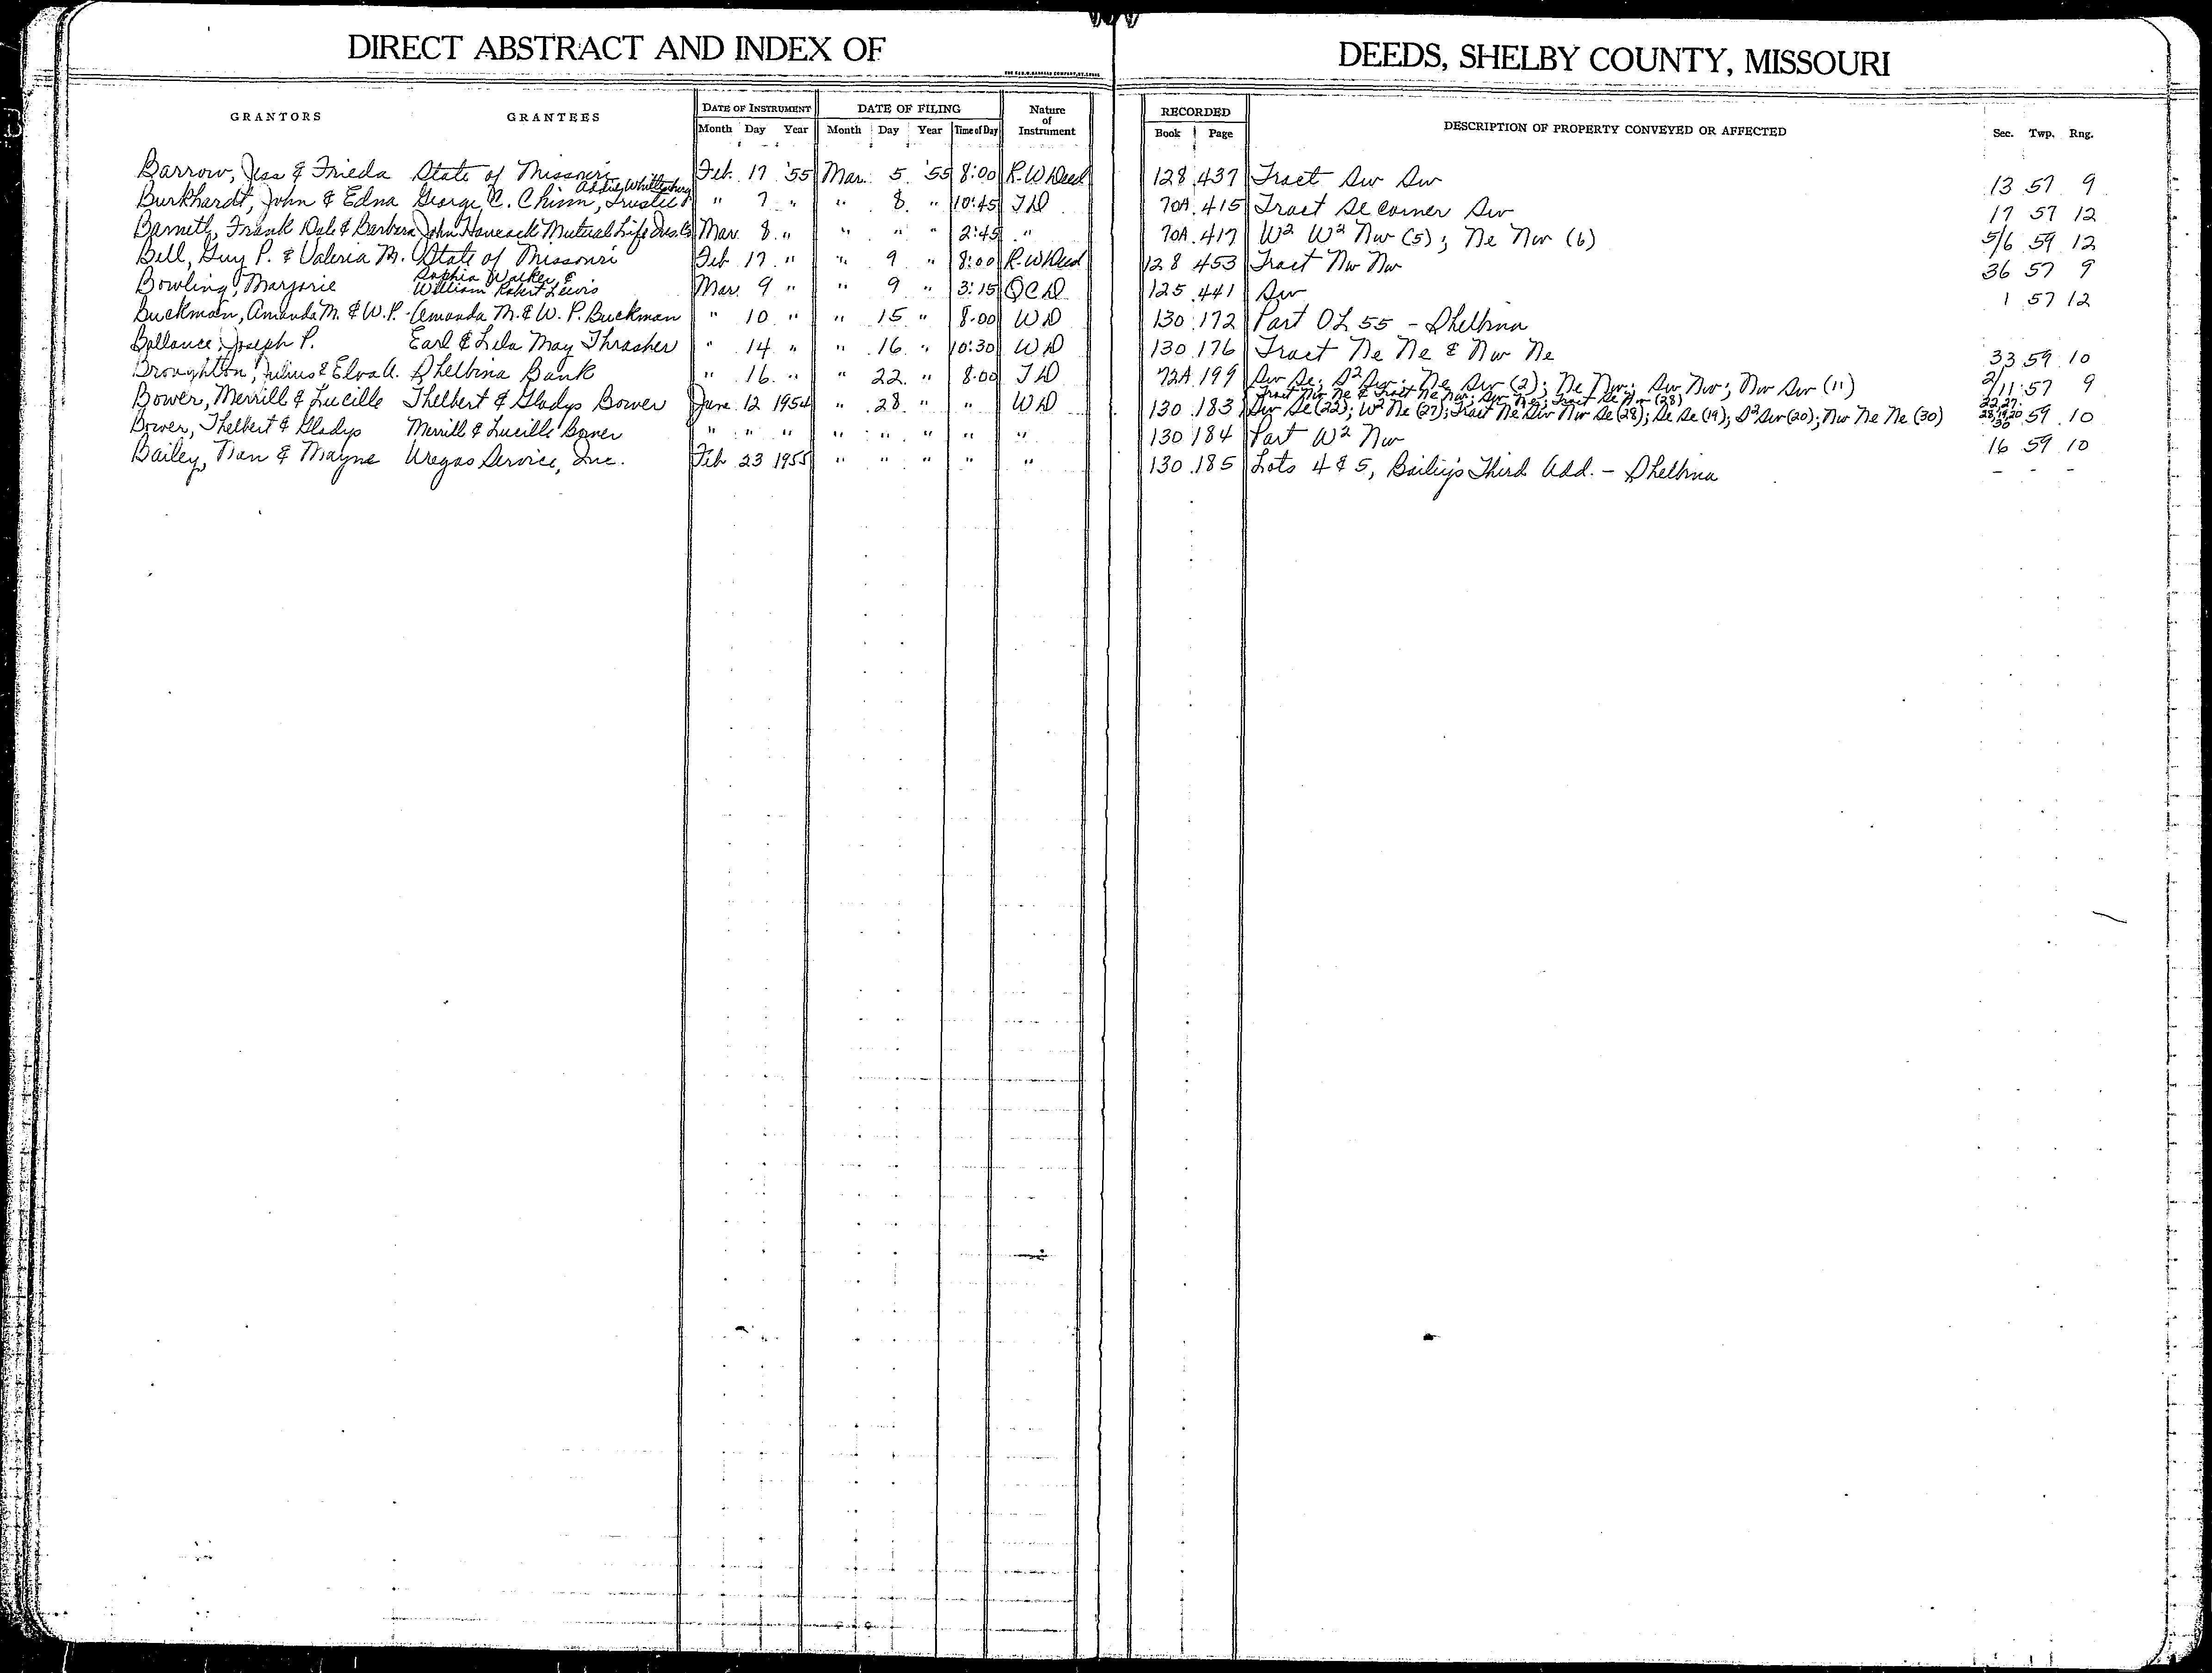 DIRECT ABSTRACT AND INDEX OF DEEDS, SHELBY COUNTY, MISSOURI
GRANTORS GRANTEES DATE OF INSTRUMENT DATE OF FILING Nature of Instrument RECORDED DESCRIPTION OF PROPERTY CONVEYED OR AFFECTED Sec. Twp. Rng.
Month Day Year Month Day Year Time of Day Book Page
Barrow, Jess & Frieda State of Missouri Feb. 17 '55 Mar. 5 '55 8:00 R.W Deed 128 437 Tract Sw Sw 13 57 9
Burkhardt, John & Edna George C. Chinn, Trustee Addie Whittenburg " 7 " " 8 " 10:45 TD 70A 415 Tract Se corner Sw 17 57 12
Barnett, Frank Dale & Barbara John Hancock Mutual Life Ins. Co Mar. 8 " " " " 2:45 " 70A 417 W² W² Nw (5); Ne Nw (6) 5/6 59 12
Bell, Guy P. & Valeria M. State of Missouri Feb 17 " " 9 " 8:00 R.W Deed 128 453 Tract Nw Nw 36 57 9
Bowling, Marjorie Sophia Walker & William Robert Lewis Mar. 9 " " 9 " 3:15 QCD 125 441 Sw 1 57 12
Buckman, Amanda M. & W.P. Amanda M. & W. P. Buckman " 10 " " 15 " 8:00 WD 130 172 Part OL 55 - Shelbina
Ballance, Joseph P. Earl & Lela May Thrasher " 14 " " 16 " 10:30 WD 130 176 Tract Ne Ne & Nw Ne 33 59 10
Broughton, Julius & Elva A. Shelbina Bank " 16 " " 22 " 8:00 TD 72A 199 Sw Se; S² Sw; Ne Sw (2); Ne Nw; Sw Nw; Nw Sw (11) 2/11 57 9
Bower, Merrill & Lucille Thelbert & Gladys Bower June 12 1954 " 28 " " WD 130 183 Tract Nw Ne & Tract Ne Nw; Sw Ne; Tract Se Nw (28)
Sw Se (22); W² Ne (27); Tract Ne Sw Nw Se (28); Se Se (19); S² Sw (20); Nw Ne Ne (30) 22,27, 28,19,20 30 59 10
Bower, Thelbert & Gladys Merrill & Lucille Bower " " " " " " " " 130 184 Part W² Nw 16 59 10
Bailey, Nan & Mayne Uregas Service, Inc. Feb 23 1955 " " " " " 130 185 Lots 4 & 5, Bailey's Third Add. - Shelbina - - -